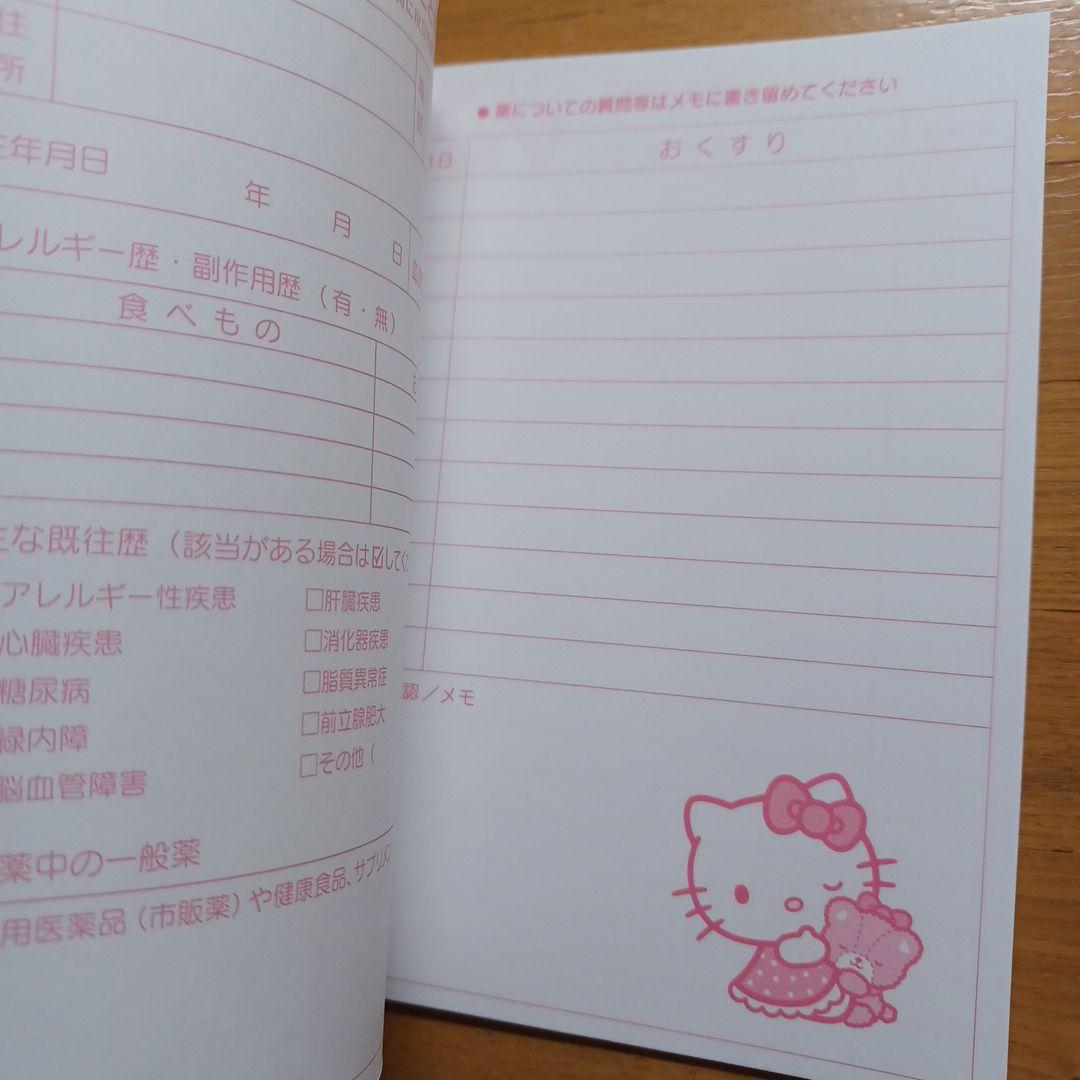 住
所
年月日
年 月 日
レルギー歴・副作用歴 (有・無)
食べもの
な既往歴 (該当がある場合は☑してく
アレルギー性疾患
□肝臓疾患
心臓疾患
□消化器疾患
糖尿病
□脂質異常症
緑内障
□前立腺肥大
脳血管障害
□その他 (
薬中の一般薬
用医薬品 (市販薬) や健康食品、サプリメン
●薬についての質問等はメモに書き留めてください
日
おくすり
認/メモ